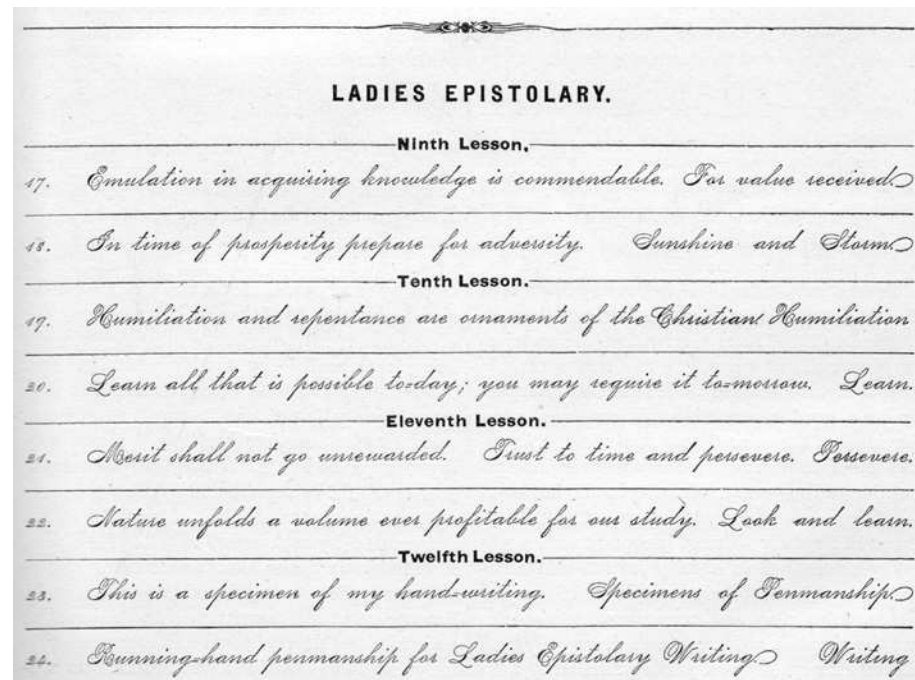 LADIES EPISTOLARY.
Ninth Lesson.
17. Emulation in acquiring knowledge is commendable. For value received.
18. In time of prosperity prepare for adversity. Sunshine and Storm.
Tenth Lesson.
19. Humiliation and repentance are ornaments of the Christian Humiliation
20. Learn all that is possible to=day; you may require it to=morrow. Learn.
Eleventh Lesson.
21. Merit shall not go unrewarded. Trust to time and persevere. Persevere.
22. Nature unfolds a volume ever profitable for our study. Look and learn.
Twelfth Lesson.
23. This is a specimen of my hand=writing. Specimens of Penmanship.
24. Running=hand penmanship for Ladies Epistolary Writing. Writing